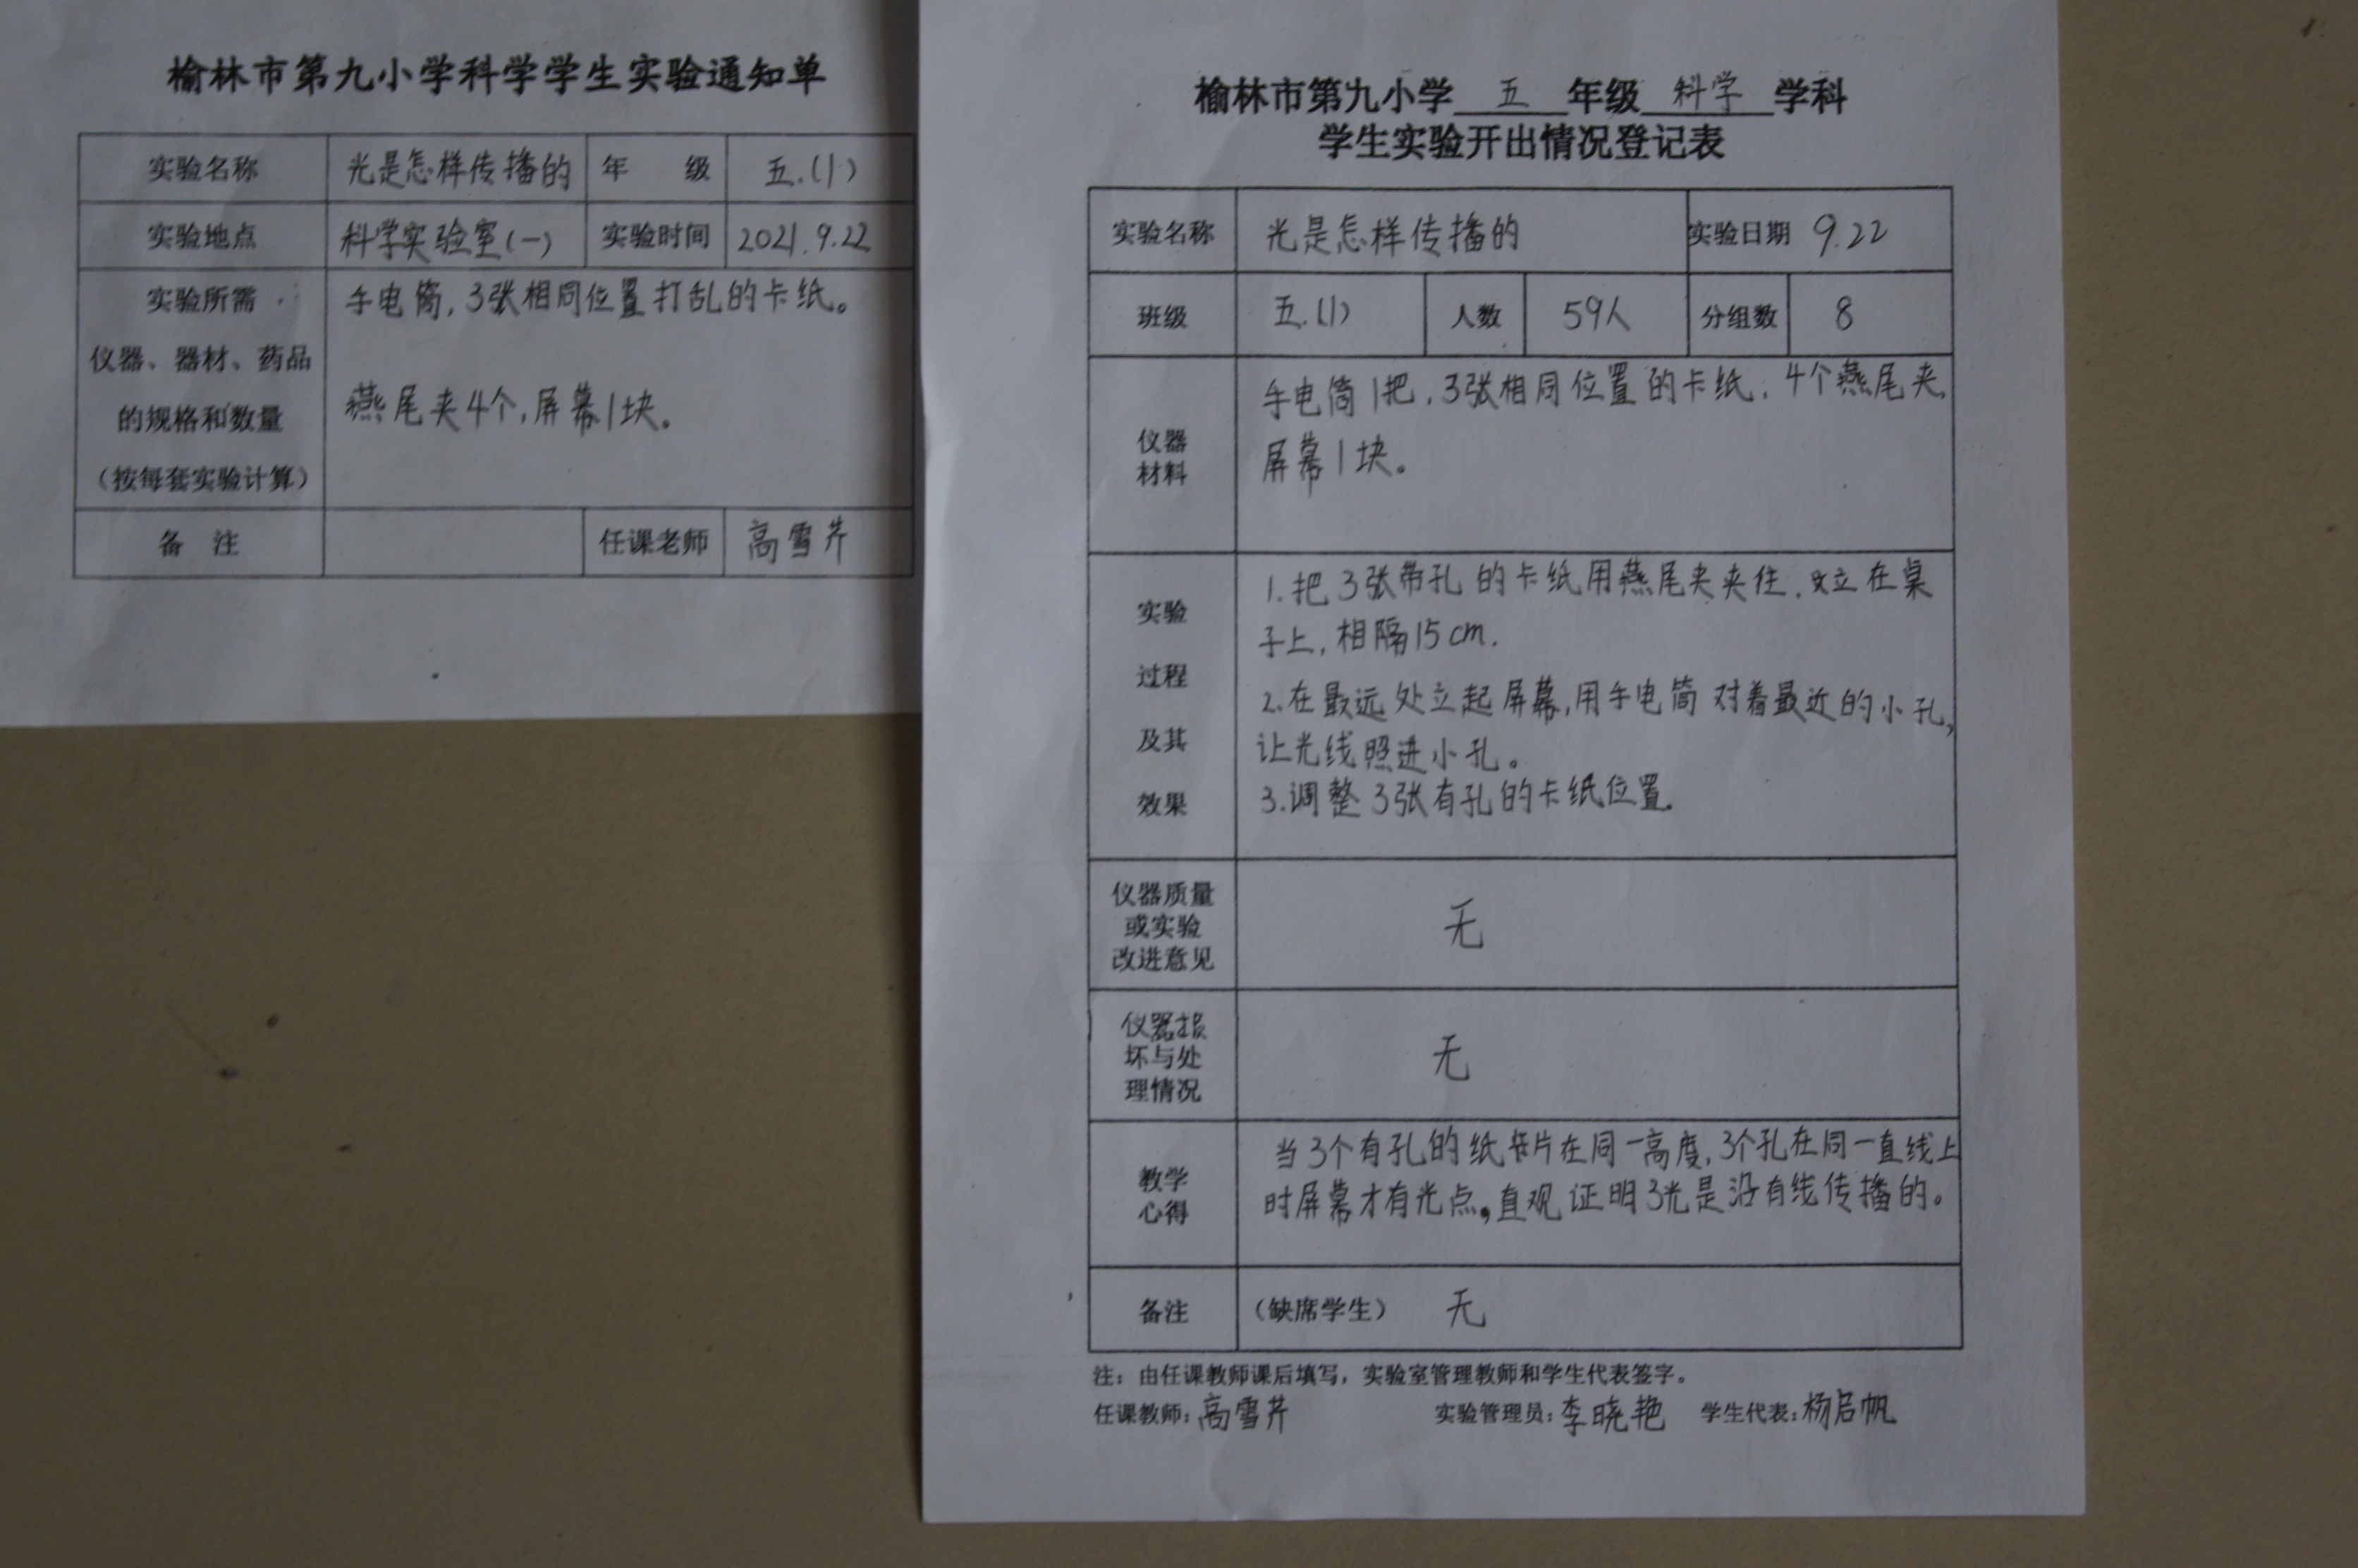 榆林市第九小学科学学生实验通知单
实验名称 光是怎样传播的 年 级 五.(1)
实验地点 科学实验室(一) 实验时间 2021.9.22
实验所需 手电筒,3张相同位置打乱的卡纸。
仪器、器材、药品
的规格和数量 燕尾夹4个,屏幕1块。
(按每套实验计算)
备 注 任课老师 高雪芹
榆林市第九小学 五 年级 科学 学科
学生实验开出情况登记表
实验名称 光是怎样传播的 实验日期 9.22
班级 五.(1) 人数 59人 分组数 8
手电筒1把,3张相同位置的卡纸,4个燕尾夹,
仪器 屏幕1块。
材料
1.把3张带孔的卡纸用燕尾夹夹住.立在桌
实验
子上,相隔15cm.
过程
2.在最远处立起屏幕,用手电筒对着最近的小孔,
及其 让光线照进小孔。
效果 3.调整3张有孔的卡纸位置.
仪器质量
或实验 无
改进意见
仪器损
坏与处 无
理情况
当3个有孔的纸卡片在同一高度,3个孔在同一直线上
教学
心得 时屏幕才有光点,直观证明3光是沿有线传播的。
备注 (缺席学生) 无
注:由任课教师课后填写,实验室管理教师和学生代表签字。
任课教师:高雪芹 实验管理员:李晓艳 学生代表:杨启帆